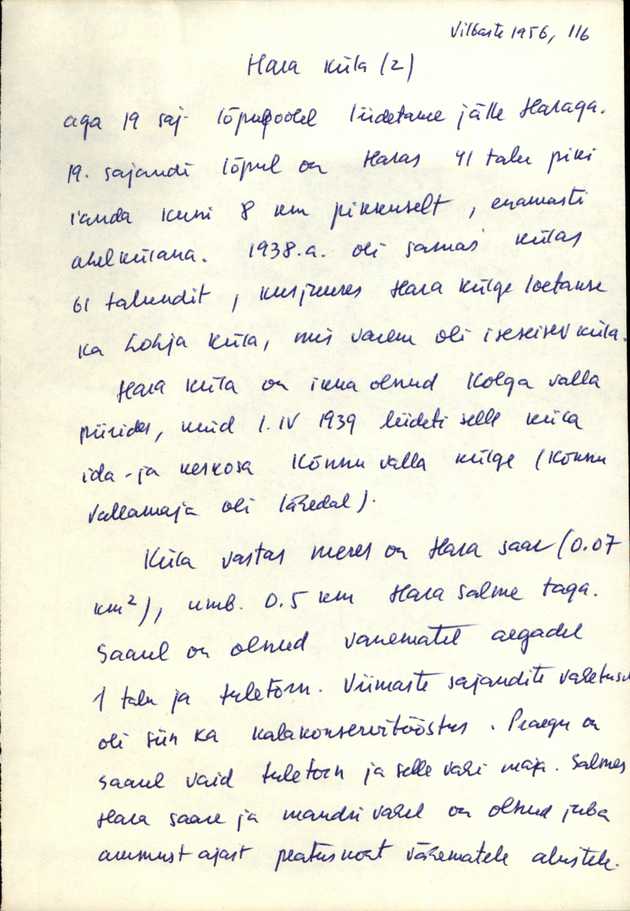 Vilbaste 1956, 116
Hara küla (2)
aga 19 saj. lõpupoolel liidetakse jälle Haraga.
19. sajandi lõpul on Haras 41 talu piki
randa kuni 8 km pikkuselt, enamasti
ahelkülana. 1938.a. oli samas külas
61 talundit, kusjuures Hara külge loetakse
ka Lohja küla, mis varem oli iseseisev küla.
Hara küla on ikka olnud Kolga valla
piirides, kuid 1. IV 1939 liideti selle küla
ida- ja keskosa Kõnnu valla külge (Kõnnu
vallamaja oli lähedal).
Küla vastas meres on Hara saar (0.07
km²), umb. 0.5 km Hara salme taga.
Saarel on olnud vanematel aegadel
1 talu ja tuletorn. Viimaste sajandite vahetusel
oli siin ka kalakonservitööstus. Praegu on
saarel vaid tuletorn ja selle vahi maja. Salmes
Hara saare ja mandri vahel on olnud juba
ammust ajast peatuskoht vähematele alustele.